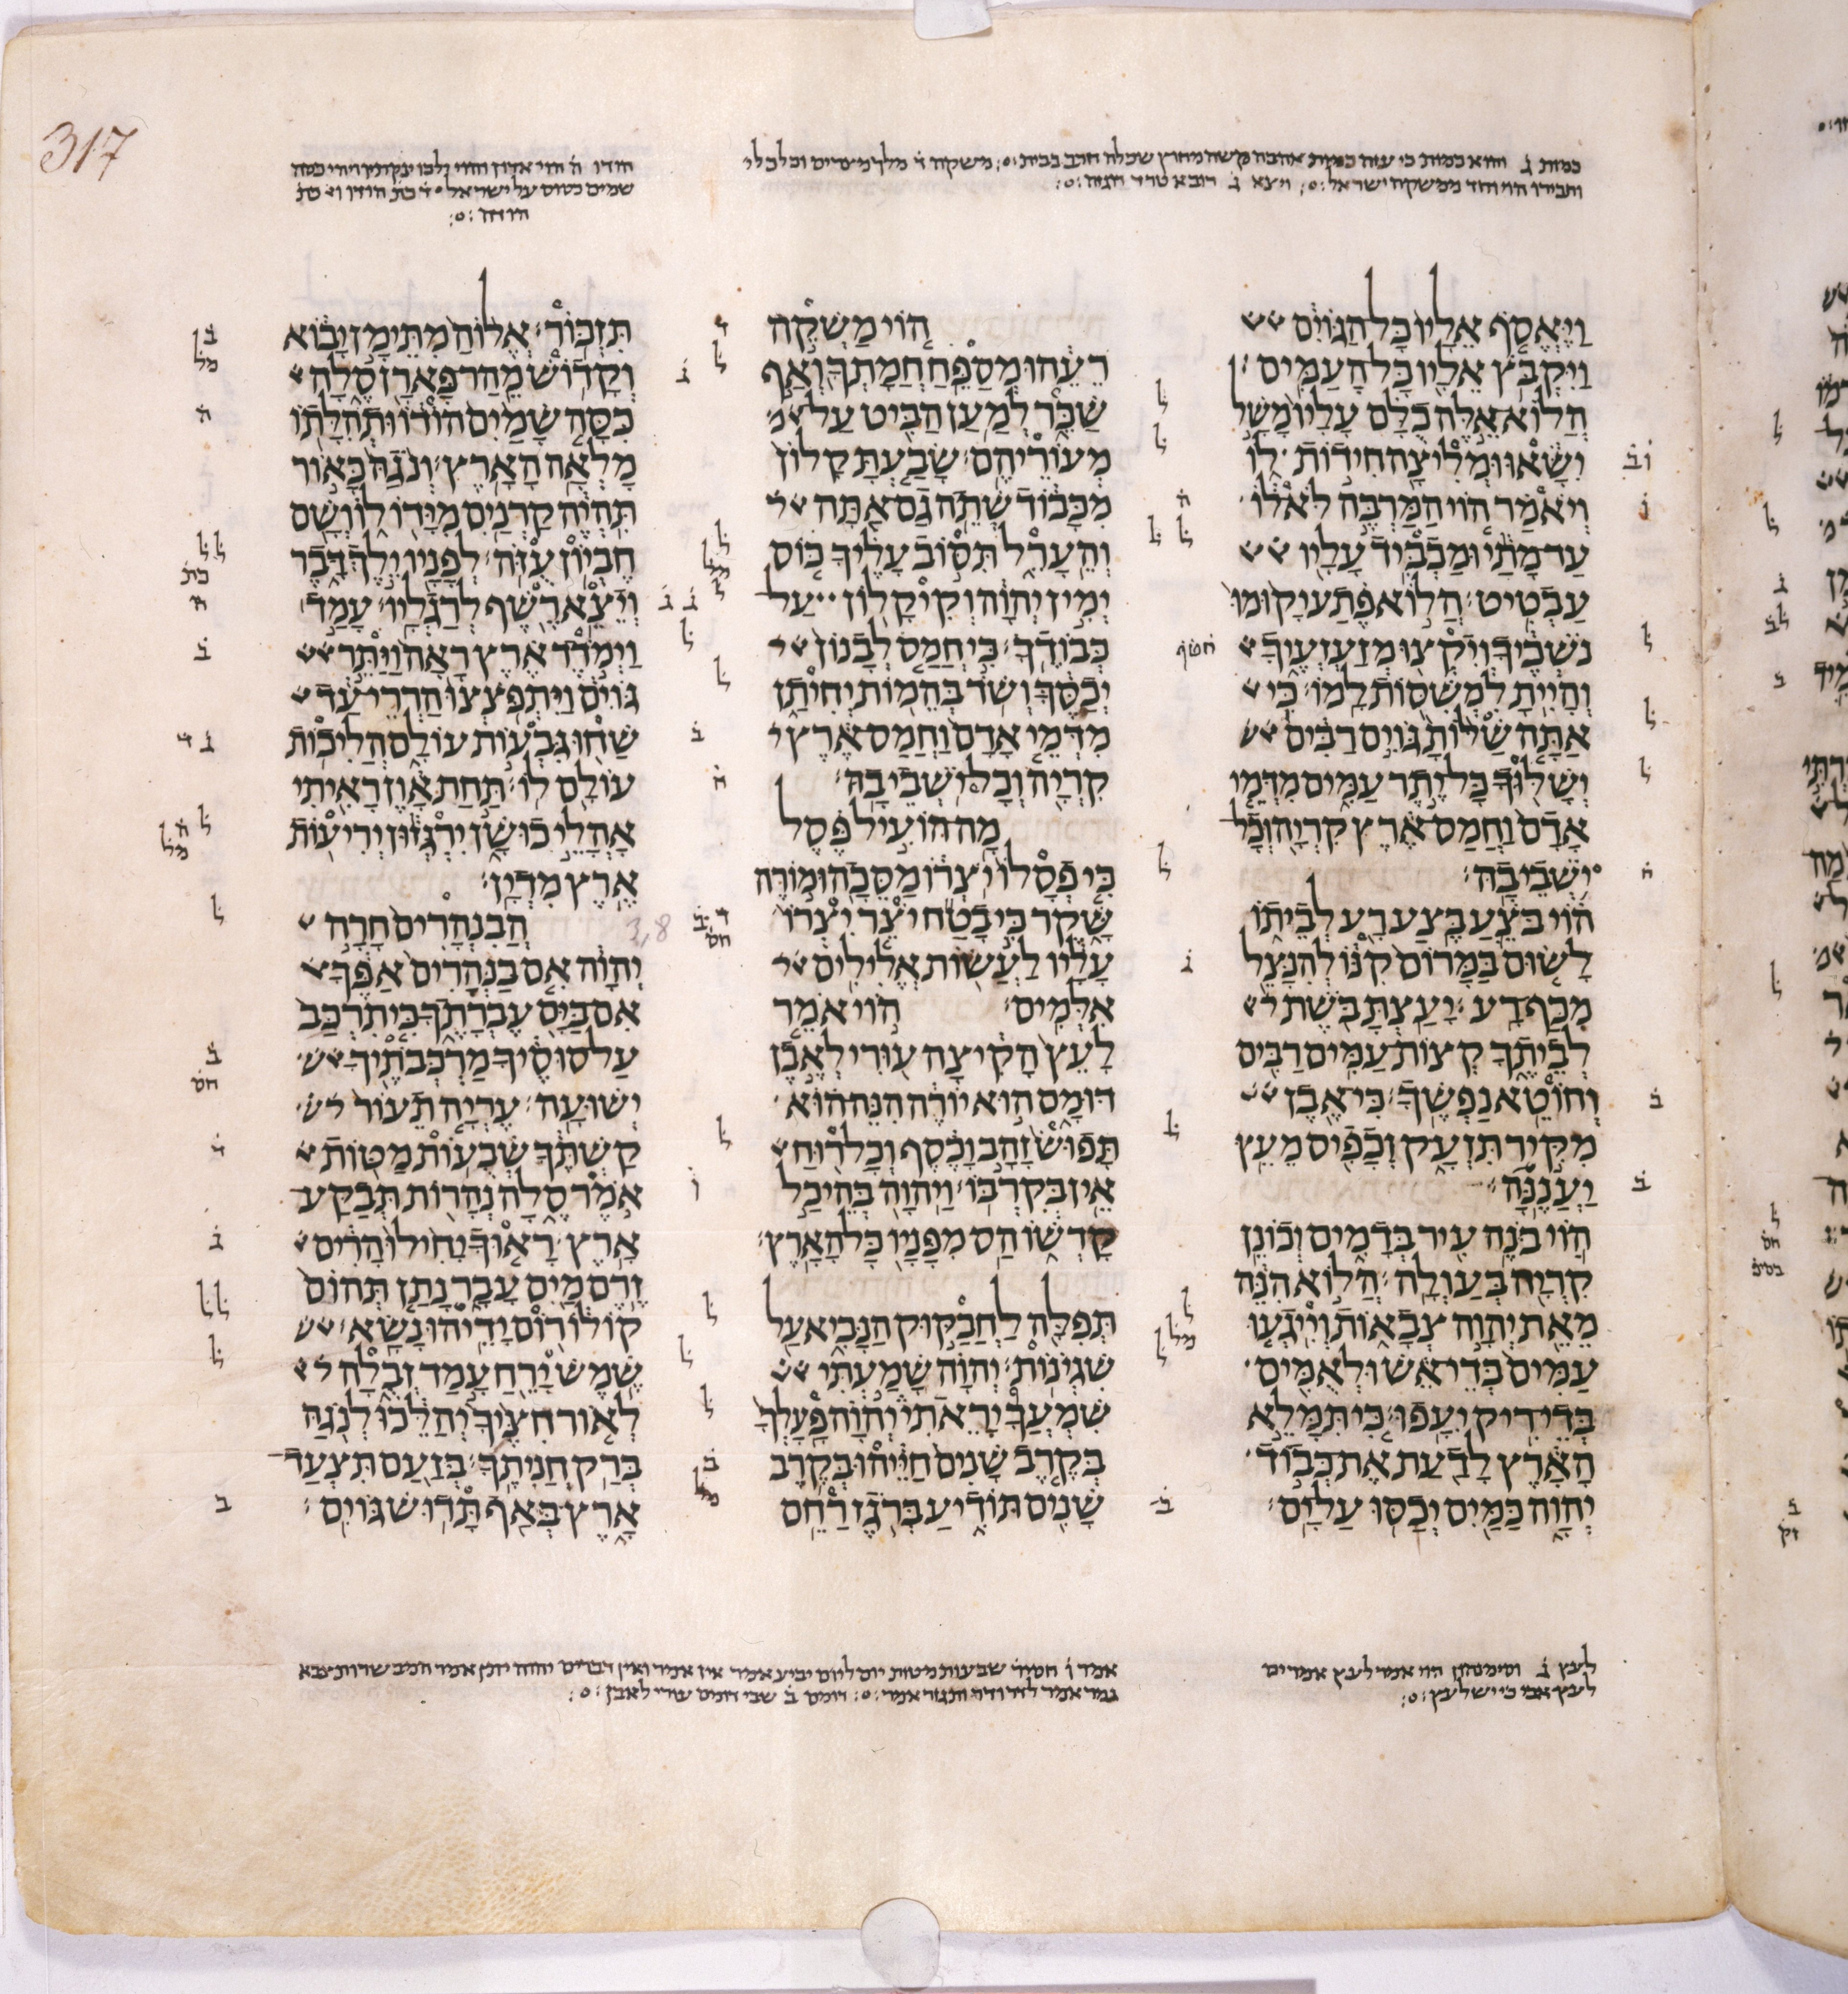 317
וַיֶּאֱסֹף אֵלָיו כָּל הַגּוֹיִם
וַיִּקְבֹּץ אֵלָיו כָּל הָעַמִּים׃
הֲלוֹא אֵלֶּה כֻלָּם עָלָיו מָשָׁל
יִשָּׂאוּ וּמְלִיצָה חִידוֹת לוֹ
וְיֹאמַר הוֹי הַמַּרְבֶּה לֹּא לוֹ
עַד מָתַי וּמַכְבִּיד עָלָיו
עַבְטִיט׃ הֲלוֹא פֶתַע יָקוּמוּ
נֹשְׁכֶיךָ וְיִקְצוּ מְזַעְזְעֶיךָ
וְהָיִיתָ לִמְשִׁסּוֹת לָמוֹ׃ כִּי
אַתָּה שַׁלּוֹתָ גּוֹיִם רַבִּים
יְשָׁלּוּךָ כָּל יֶתֶר עַמִּים מִדְּמֵי
אָדָם וַחֲמַס אֶרֶץ קִרְיָה וְכָל
יֹשְׁבֵי בָהּ׃
הוֹי בֹּצֵעַ בֶּצַע רָע לְבֵיתוֹ
לָשׂוּם בַּמָּרוֹם קִנּוֹ לְהִנָּצֵל
מִכַּף רָע׃ יָעַצְתָּ בֹּשֶׁת
לְבֵיתֶךָ קְצוֹת עַמִּים רַבִּים
וְחוֹטֵא נַפְשֶׁךָ׃ כִּי אֶבֶן
מִקִּיר תִּזְעָק וְכָפִיס מֵעֵץ
יַעֲנֶנָּה׃
הוֹי בֹּנֶה עִיר בְּדָמִים וְכוֹנֵן
קִרְיָה בְּעַוְלָה׃ הֲלוֹא הִנֵּה
מֵאֵת יְהוָה צְבָאוֹת וְיִיגְעוּ
עַמִּים בְּדֵי אֵשׁ וּלְאֻמִּים
בְּדֵי רִיק יִעָפוּ׃ כִּי תִּמָּלֵא
הָאָרֶץ לָדַעַת אֶת כְּבוֹד
יְהוָה כַּמַּיִם יְכַסּוּ עַל יָם׃
הוֹי מַשְׁקֵה
רֵעֵהוּ מְסַפֵּחַ חֲמָתְךָ וְאַף
שַׁכֵּר לְמַעַן הַבִּיט עַל
מְעוֹרֵיהֶם׃ שָׂבַעְתָּ קָלוֹן
מִכָּבוֹד שְׁתֵה גַם אַתָּה
וְהֵעָרֵל תִּסּוֹב עָלֶיךָ כּוֹס
יְמִין יְהוָה וְקִיקָלוֹן עַל
כְּבוֹדֶךָ׃ כִּי חֲמַס לְבָנוֹן
יְכַסֶּךָּ וְשֹׁד בְּהֵמוֹת יְחִיתַן
מִדְּמֵי אָדָם וַחֲמַס אֶרֶץ
קִרְיָה וְכָל יֹשְׁבֵי בָהּ׃
מָה הוֹעִיל פֶּסֶל
כִּי פְסָלוֹ יֹצְרוֹ מַסֵּכָה וּמוֹרֶה
שָּׁקֶר כִּי בָטַח יֹצֵר יִצְרוֹ
עָלָיו לַעֲשׂוֹת אֱלִילִים
אִלְּמִים׃ הוֹי אֹמֵר
לָעֵץ הָקִיצָה עוּרִי לְאֶבֶן
דּוּמָם הוּא יוֹרֶה הִנֵּה הוּא
תָּפוּשׂ זָהָב וָכֶסֶף וְכָל רוּחַ
אֵין בְּקִרְבּוֹ׃ וַיהוָה בְּהֵיכַל
קָדְשׁוֹ הַס מִפָּנָיו כָּל הָאָרֶץ׃
תְּפִלָּה לַחֲבַקּוּק הַנָּבִיא עַל
שִׁגְיֹנוֹת׃ יְהוָה שָׁמַעְתִּי
שִׁמְעֲךָ יָרֵאתִי יְהוָה פָּעָלְךָ
בְּקֶרֶב שָׁנִים חַיֵּיהוּ בְּקֶרֶב
שָׁנִים תּוֹדִיעַ בְּרֹגֶז רַחֵם
תִּזְכּוֹר׃ אֱלוֹהַ מִתֵּימָן יָבוֹא
וְקָדוֹשׁ מֵהַר פָּארָן סֶלָה
כִּסָּה שָׁמַיִם הוֹדוֹ וּתְהִלָּתוֹ
מָלְאָה הָאָרֶץ׃ וְנֹגַהּ כָּאוֹר
תִּהְיֶה קַרְנַיִם מִיָּדוֹ לוֹ וְשָׁם
חֶבְיוֹן עֻזֹּה׃ לְפָנָיו יֵלֶךְ דָּבֶר
וְיֵצֵא רֶשֶׁף לְרַגְלָיו׃ עָמַד
וַיְמֹדֶד אֶרֶץ רָאָה וַיַּתֵּר
גּוֹיִם וַיִּתְפֹּצְצוּ הַרְרֵי עַד
שַׁחוּ גִּבְעוֹת עוֹלָם הֲלִיכוֹת
עוֹלָם לוֹ׃ תַּחַת אָוֶן רָאִיתִי
אָהֳלֵי כוּשָׁן יִרְגְּזוּן יְרִיעוֹת
אֶרֶץ מִדְיָן׃
3,8 הֲבִנְהָרִים חָרָה
יְהוָה אִם בַּנְּהָרִים אַפֶּךָ
אִם בַּיָּם עֶבְרָתֶךָ כִּי תִרְכַּב
עַל סוּסֶיךָ מַרְכְּבֹתֶיךָ
יְשׁוּעָה׃ עֶרְיָה תֵעוֹר
קַשְׁתֶּךָ שְׁבֻעוֹת מַטּוֹת
אֹמֶר סֶלָה נְהָרוֹת תְּבַקַּע
אָרֶץ׃ רָאוּךָ יָחִילוּ הָרִים
זֶרֶם מַיִם עָבָר נָתַן תְּהוֹם
קוֹלוֹ רוֹם יָדֵיהוּ נָשָׂא׃
שֶׁמֶשׁ יָרֵחַ עָמַד זְבֻלָה
לְאוֹר חִצֶּיךָ יְהַלֵּכוּ לְנֹגַהּ
בְּרַק חֲנִיתֶךָ׃ בְּזַעַם תִּצְעַד
אָרֶץ בְּאַף תָּדוּשׁ גּוֹיִם׃